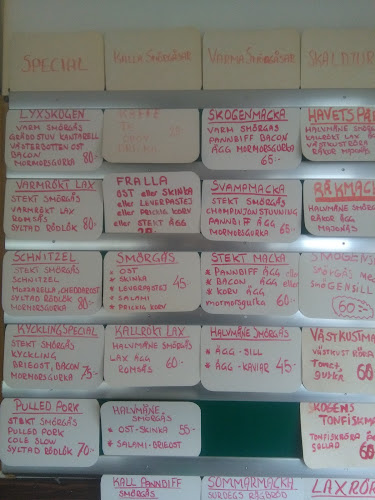 SPECIAL
KALLA SMÖRGÅSAR
VARMA SMÖRGÅSAR
SKALDJUR
LYXSKOGEN
VARM SMÖRGÅS
GRÄDDSTUV KANTARELL
VÄSTERBOTTEN OST
BACON
MORMORSGURKA 80:-
KAFFE
TE
SKOGENMACKA
VARM SMÖRGÅS
PANNBIFF BACON
ÄGG MORMORSGURKA
65:-
HAVETS
HALVMÅNE SMÖRG
KALLRÖKT LAX
VÄSTKUSTRÖRA
RÄKOR MAJONÄS
VARMRÖKT LAX
STEKT SMÖRGÅS
VARMRÖKT LAX
ROMSÅS
SYLTAD RÖDLÖK 80:-
FRALLA
OST eller SKINKA
eller LEVERPASTEJ
eller PRICKIG KORV
eller STEKT ÄGG
SVAMPMACKA
STEKT SMÖRGÅS
CHAMPINJONSTUVNING
PANNBIFF ÄGG
MORMORSGURKA 65:-
RÄKMACK
HALVMÅNE SMÖRG
RÄKOR ÄGG
MAJONÄS
SCHNITZEL
STEKT SMÖRGÅS
SCHNITZEL
MOZZARELLA, CHEDDAROST
SYLTAD RÖDLÖK 80:-
MORMORSGURKA
SMÖRGÅS
* OST
* SKINKA
* LEVERPASTEJ 45:-
* SALAMI
* PRICKIG KORV
STEKT MACKA
* PANNBIFF ÄGG eller
* BACON ÄGG eller
* KORV ÄGG
mormorsgurka 60:-
SMÖGENS
SMÖRGÅS MED
SMÖGENSILL
60:-
KYCKLINGSPECIAL
STEKT SMÖRGÅS
KYCKLING
BRIEOST, BACON
MORMORSGURKA 75:-
KALLRÖKT LAX
HALVMÅNE SMÖRGÅS
LAX ÄGG
ROMSÅS 60:-
HALVMÅNE SMÖRGÅS
* ÄGG - SILL
* ÄGG - KAVIAR 45:-
VÄSTKUSTMA
VÄSTKUST RÖRA
TOMAT,
GURKA 60
PULLED PORK
STEKT SMÖRGÅS
PULLED PORK
COLE SLOW
SYLTAD RÖDLÖK 70:-
HALVMÅNE
SMÖRGÅS
* OST-SKINKA 55:-
* SALAMI-BRIEOST
SKOGENS
TONFISKM
TONFISKRÖRA
SALLAD 60
KALL PANNBIFF
SMÖRGÅS
SOMMARMACKA
LAXRÖR